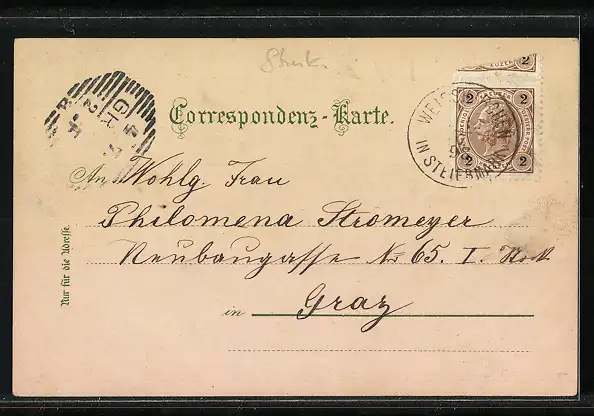 Correspondenz-Karte.
2
2
2
2 2
IN STEIERMARK
An Wohlg. Frau
Philomena Stromeyer
Neubaugasse No 65. I. Stock
in Graz
Nur für die Adresse.